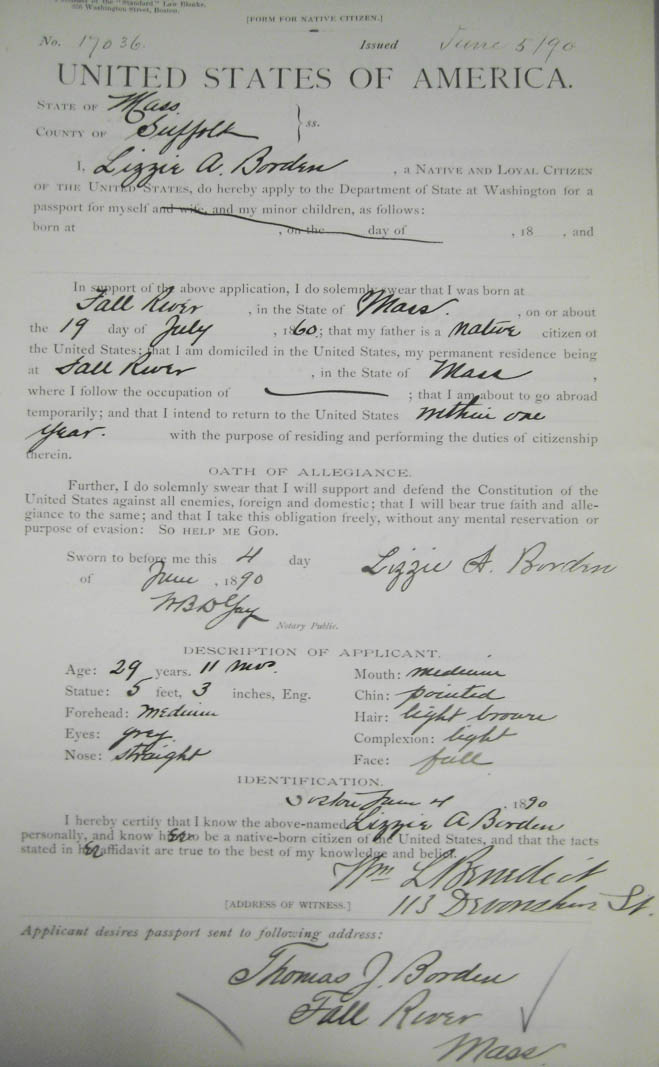 of the "Standard" Law Blanks,
226 Washington Street, Boston.
[FORM FOR NATIVE CITIZEN.]
No. 17036. Issued June 5/90
UNITED STATES OF AMERICA.
STATE OF Mass
COUNTY OF Suffolk } ss.
I, Lizzie A. Borden, a NATIVE AND LOYAL CITIZEN
OF THE UNITED STATES, do hereby apply to the Department of State at Washington for a
passport for myself and wife, and my minor children, as follows:
born at , on the day of , 18 , and
In support of the above application, I do solemnly swear that I was born at
Fall River , in the State of Mass. , on or about
the 19 day of July , 1860; that my father is a native citizen of
the United States; that I am domiciled in the United States, my permanent residence being
at Fall River , in the State of Mass ,
where I follow the occupation of ; that I am about to go abroad
temporarily; and that I intend to return to the United States within one
year. with the purpose of residing and performing the duties of citizenship
therein.
OATH OF ALLEGIANCE.
Further, I do solemnly swear that I will support and defend the Constitution of the
United States against all enemies, foreign and domestic; that I will bear true faith and alle-
giance to the same; and that I take this obligation freely, without any mental reservation or
purpose of evasion: SO HELP ME GOD.
Sworn to before me this 4 day Lizzie A. Borden
of June , 1890
Notary Public.
DESCRIPTION OF APPLICANT.
Age: 29 years. 11 mos. Mouth: medium
Statue: 5 feet, 3 inches, Eng. Chin: pointed
Forehead: Medium Hair: light brown
Eyes: grey. Complexion: light
Nose: straight Face: full
IDENTIFICATION.
Boston June 4 , 1890
I hereby certify that I know the above-named Lizzie A Borden
personally, and know her to be a native-born citizen of the United States, and that the facts
stated in her affidavit are true to the best of my knowledge and belief.
Wm L Benedict
[ADDRESS OF WITNESS.] 113 Devonshire St.
Applicant desires passport sent to following address:
Thomas J. Borden
Fall River
Mass